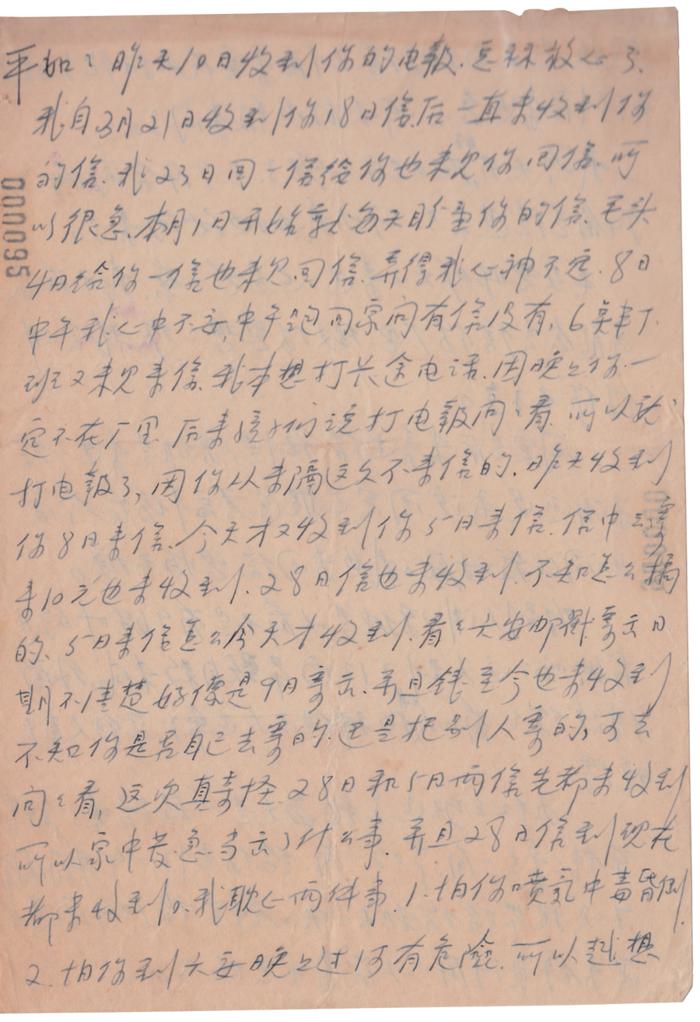 平如：昨天10日收到你的电报.怎样放心了.
我自3月21日收到你18日信后一直未收到你
的信.我23日回一信给你也未见你回信.所
以很急.本月1日开始就每天盼望你的信.毛头
4日给你一信也未见回信.弄得我心神不定.8日
中午我心中不安,中午跑回家问有信没有,6类车下
班又未见来信.我本想打长途电话.因晚上你一
定不在厂里.后来孩子们说打电报问问看.所以就
打电报了,因你从来隔这久不来信的.昨天收到
你8日来信.今天才又收到你5日来信.信中云寄
来10元也未收到.28日信也未收到.不知怎么搞
的.5日来信怎么今天才收到.看看六安邮戳寄出日
期不清楚好像是9日寄出.并且钱至今也未收到
不知你是否自己去寄的.还是托别人寄的,可去
问问看,这次真奇怪.28日和5日两信先都未收到
所以家中发急当出了什么事.并且28日信到现在
都未收到.我耽心两件事.1.怕你喷气中毒昏倒.
2.怕你到六安晚上过河有危险.所以越想
000095